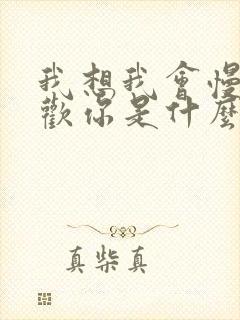 我想我會慢
歡你是什麼
真柴真